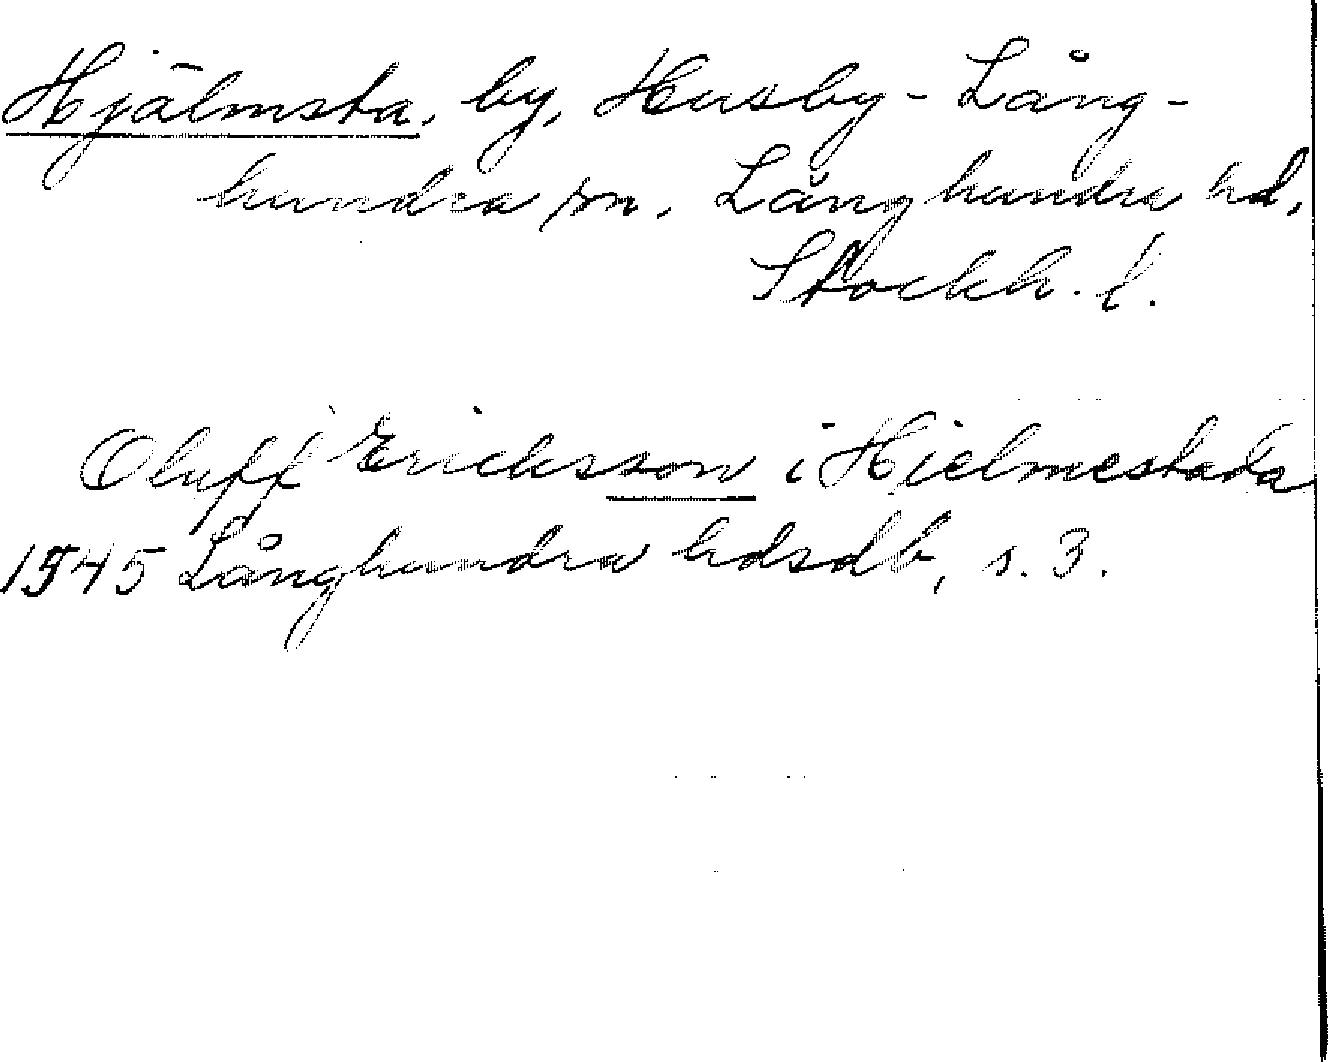 Hjälmsta, by, Husby-Lång-
hundra sn, Långhundra hd,
Stockh. l.
Oluff Ericksson i Hielmestada
1545 Långhundra hdsdb, s. 3.